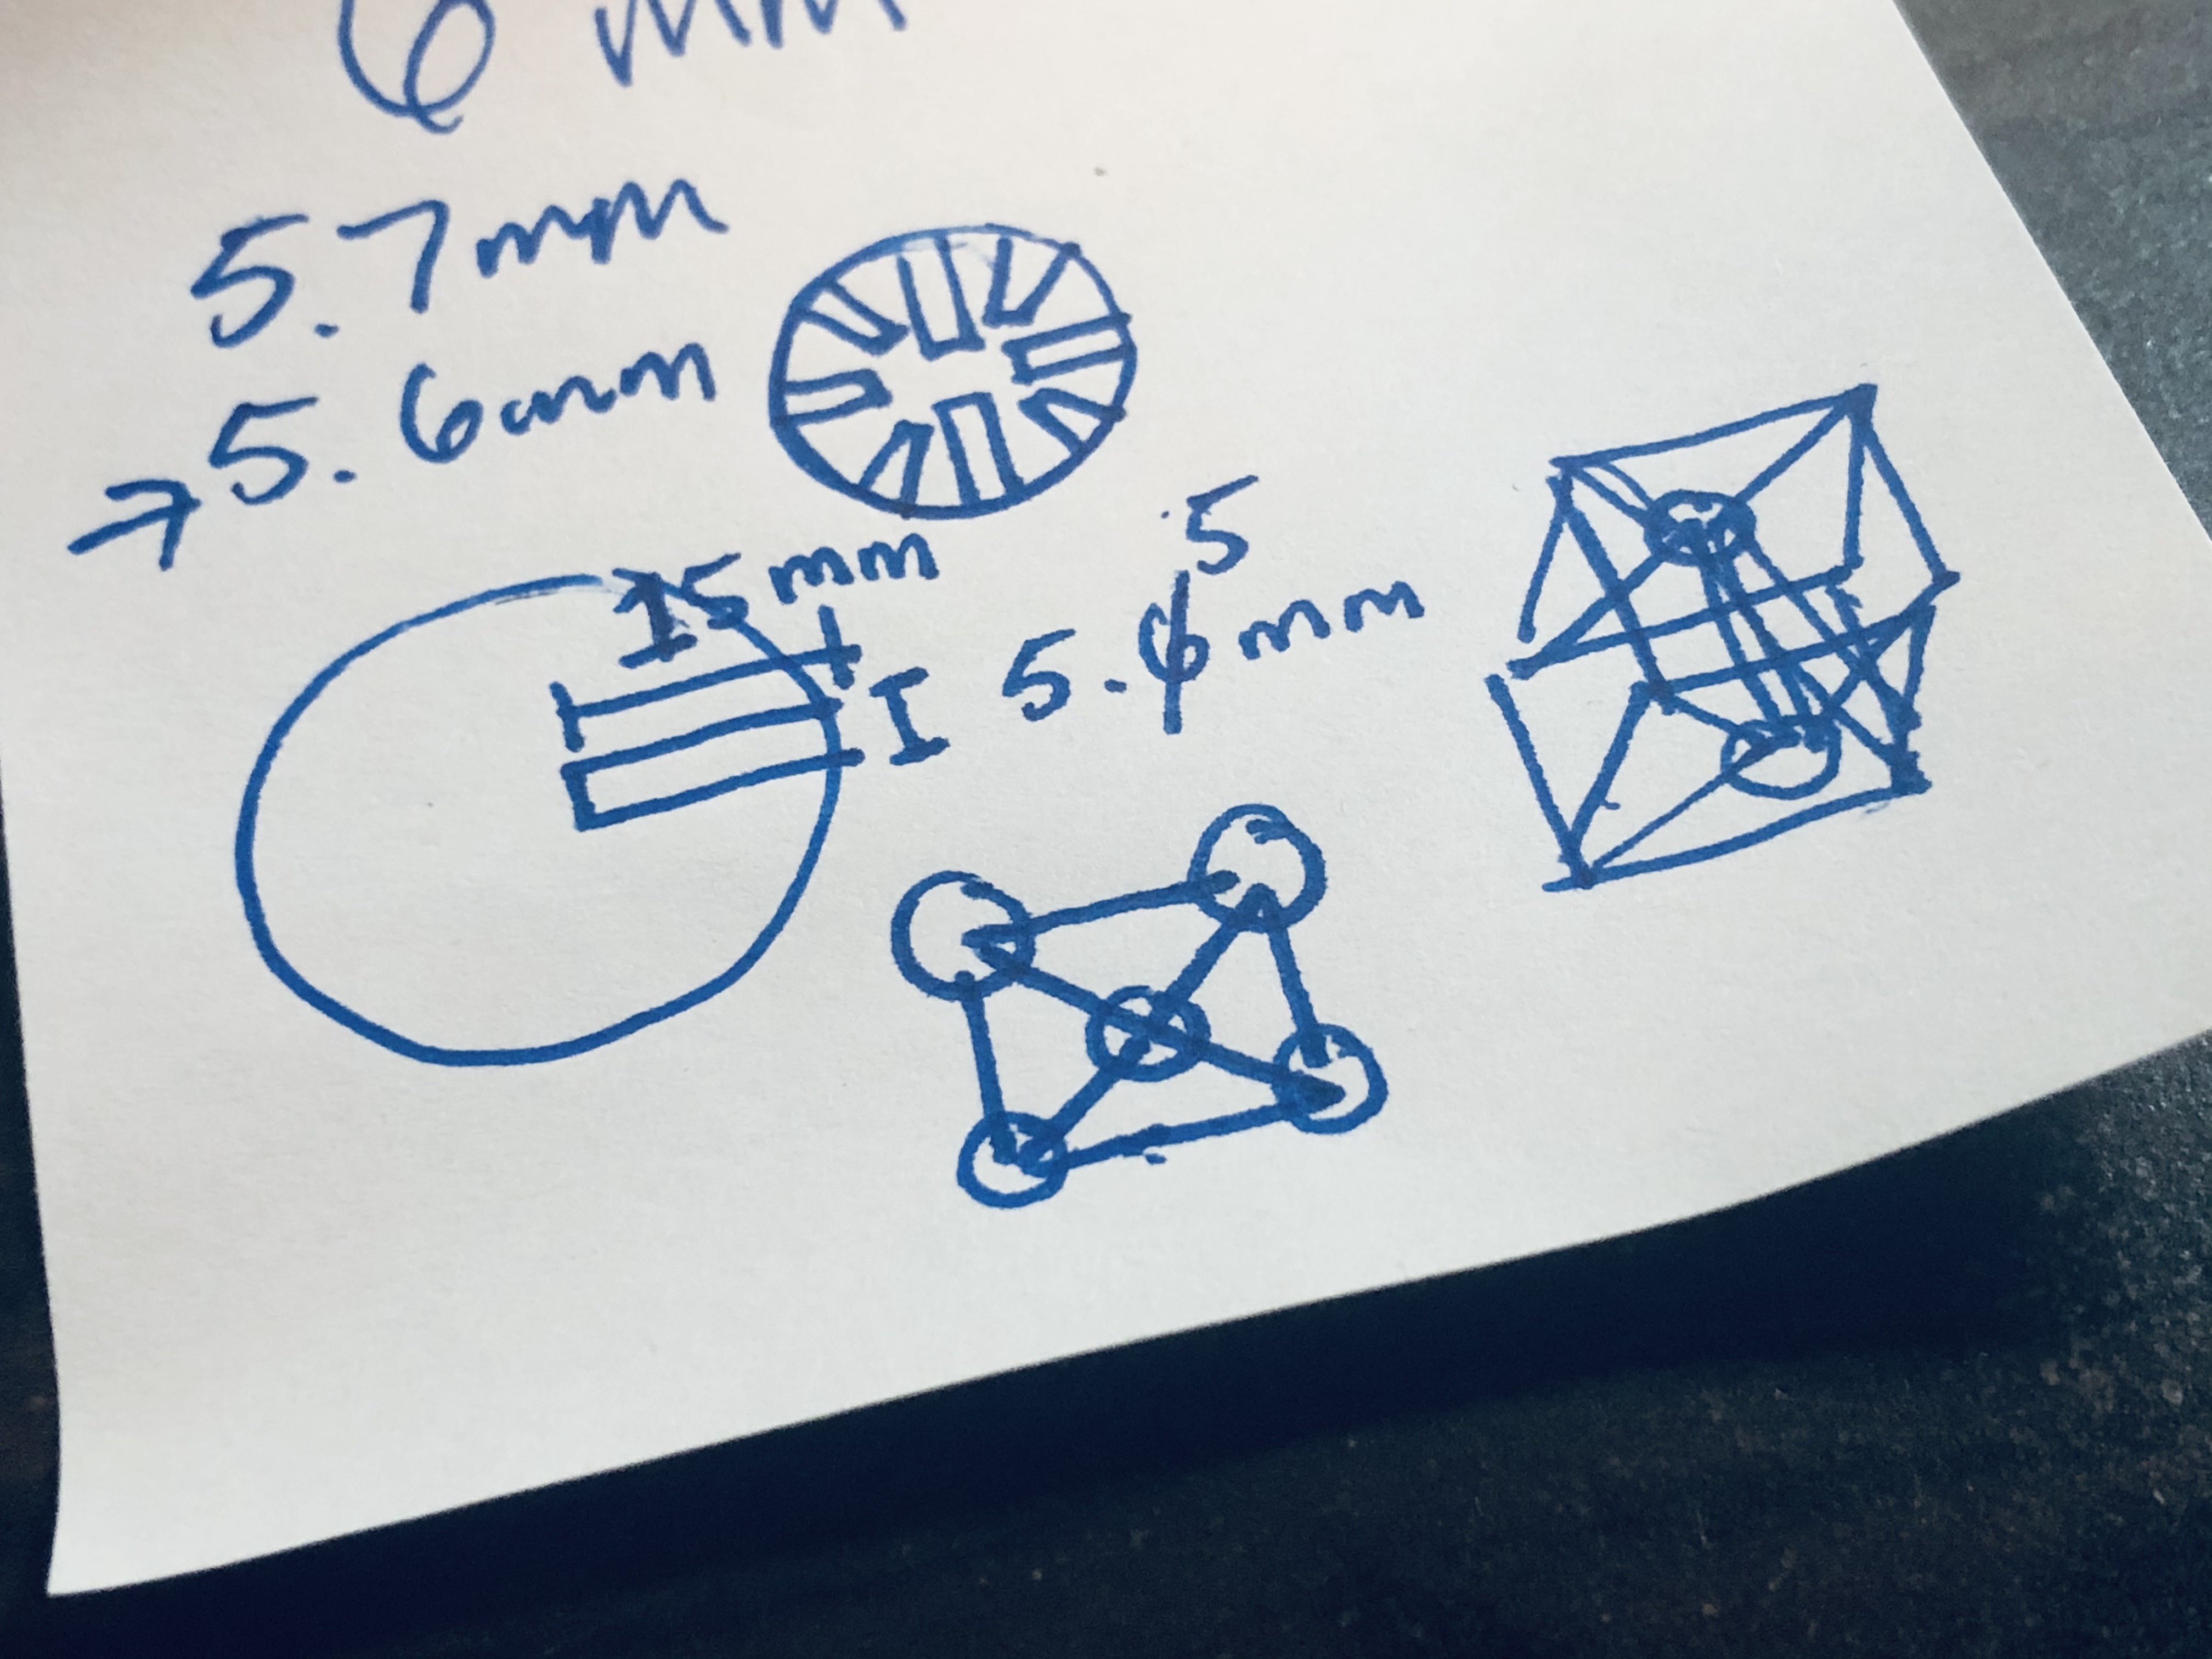 6 mm
5.7mm
→5.6mm
15mm
5
5.6mm